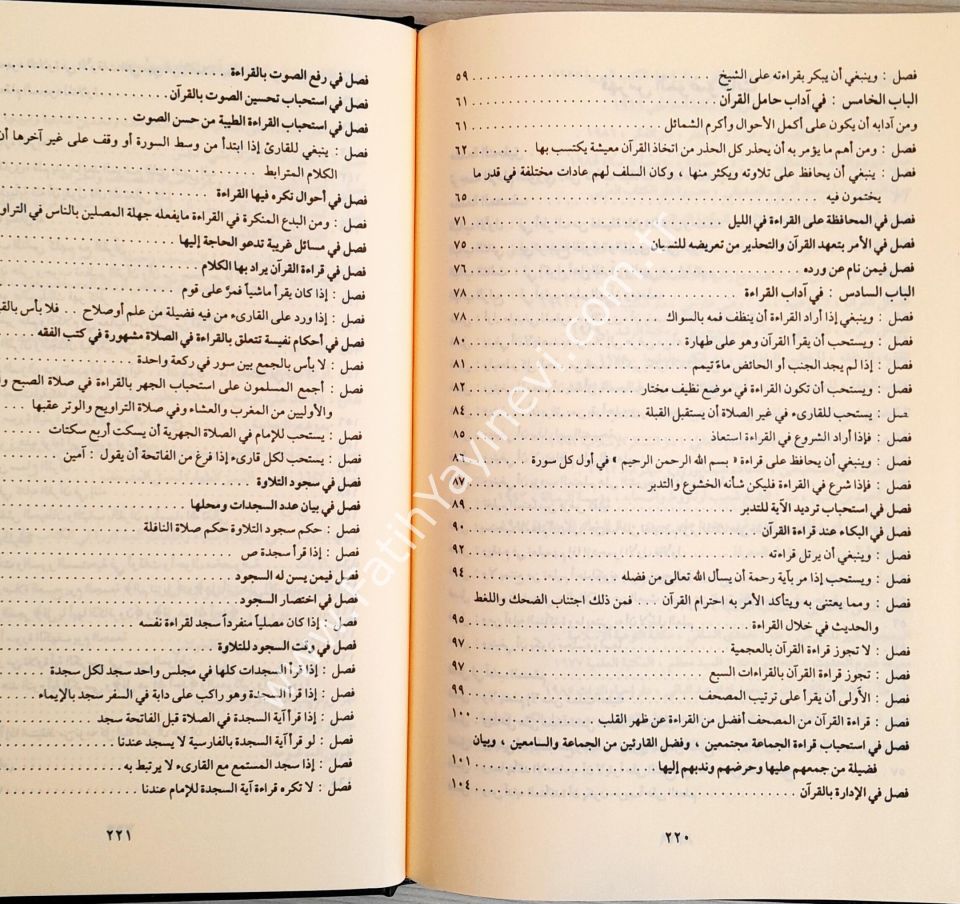 فصل : وينبغي أن يبكر بقراءته على الشيخ ............ ٥٩
الباب الخامس : في آداب حامل القرآن ............ ٦١
ومن آدابه أن يكون على أكمل الأحوال وأكرم الشمائل ............ ٦١
فصل : ومن أهم ما يؤمر به أن يحذر كل الحذر من اتخاذ القرآن معيشة يكتسب بها .. ٦٢
فصل : ينبغي أن يحافظ على تلاوته ويكثر منها ، وكان السلف لهم عادات مختلفة في قدر ما
يختمون فيه ............ ٦٥
فصل في المحافظة على القراءة في الليل ............ ٧١
فصل في الأمر بتعهد القرآن والتحذير من تعريضه للنسيان ............ ٧٥
فصل فيمن نام عن ورده ............ ٧٦
الباب السادس : في آداب القراءة ............ ٧٨
فصل : وينبغي إذا أراد القراءة أن ينظف فمه بالسواك ............ ٧٨
فصل : ويستحب أن يقرأ القرآن وهو على طهارة ............ ٨٠
فصل : إذا لم يجد الجنب أو الحائض ماءً تيمم ............ ٨١
فصل : ويستحب أن تكون القراءة في موضع نظيف مختار ............ ٨٢
فصل : يستحب للقارىء في غير الصلاة أن يستقبل القبلة ............ ٨٤
فصل : فإذا أراد الشروع في القراءة استعاذ ............ ٨٥
فصل : وينبغي أن يحافظ على قراءة « بسم الله الرحمن الرحيم » في أول كل سورة .. ٨٦
فصل : فإذا شرع في القراءة فليكن شأنه الخشوع والتدبر ............ ٨٧
فصل في استحباب ترديد الآية للتدبر ............ ٨٩
فصل في البكاء عند قراءة القرآن ............ ٩٠
فصل : وينبغي أن يرتل قراءته ............ ٩٢
فصل : ويستحب إذا مر بآية رحمة أن يسأل الله تعالى من فضله ............ ٩٤
فصل : ومما يعتنى به ويتأكد الأمر به احترام القرآن ... فمن ذلك اجتناب الضحك واللغط
والحديث في خلال القراءة ............ ٩٥
فصل : لا تجوز قراءة القرآن بالعجمية ............ ٩٧
فصل : تجوز قراءة القرآن بالقراءات السبع ............ ٩٧
فصل : الأَولى أن يقرأ على ترتيب المصحف ............ ٩٩
فصل : قراءة القرآن من المصحف أفضل من القراءة عن ظهر القلب ............ ١٠٠
فصل في استحباب قراءة الجماعة مجتمعين ، وفضل القارئين من الجماعة والسامعين ، وبيان
فضيلة من جمعهم عليها وحرضهم وندبهم إليها ............ ١٠١
فصل في الإدارة بالقرآن ............ ١٠٤
٢٢٠
فصل في رفع الصوت بالقراءة ............
فصل في استحباب تحسين الصوت بالقرآن ............
فصل في استحباب القراءة الطيبة من حسن الصوت ............
فصل : ينبغي للقارئ إذا ابتدأ من وسط السورة أو وقف على غير آخرها أن
الكلام المترابط ............
فصل في أحوال تكره فيها القراءة ............
فصل : ومن البدع المنكرة في القراءة مايفعله جهلة المصلين بالناس في التراو
فصل في مسائل غريبة تدعو الحاجة إليها ............
فصل في قراءة القرآن يراد بها الكلام ............
فصل : إذا كان يقرأ ماشياً فمرَّ على قوم ............
فصل : إذا ورد على القارىء من فيه فضيلة من علم أوصلاح .. فلا بأس بالقي
فصل في أحكام نفيسة تتعلق بالقراءة في الصلاة مشهورة في كتب الفقه
فصل : لا بأس بالجمع بين سور في ركعة واحدة ............
فصل : أجمع المسلمون على استحباب الجهر بالقراءة في صلاة الصبح وا
والأوليين من المغرب والعشاء وفي صلاة التراويح والوتر عقبها ...
فصل : يستحب للإمام في الصلاة الجهرية أن يسكت أربع سكتات ....
فصل : يستحب لكل قارىء إذا فرغ من الفاتحة أن يقول : آمين ....
فصل في سجود التلاوة ............
فصل في بيان عدد السجدات ومحلها ............
فصل : حكم سجود التلاوة حكم صلاة النافلة ............
فصل : إذا قرأ سجدة ص ............
فصل فيمن يسن له السجود ............
فصل في اختصار السجود ............
فصل : إذا كان مصلياً منفرداً سجد لقراءة نفسه ............
فصل في وقت السجود للتلاوة ............
فصل : إذا قرأ السجدات كلها في مجلس واحد سجد لكل سجدة ....
فصل : إذا قرأ السجدة وهو راكب على دابة في السفر سجد بالإيماء ..
فصل : إذا قرأ آية السجدة في الصلاة قبل الفاتحة سجد ............
فصل : لو قرأ آية السجدة بالفارسية لا يسجد عندنا ............
فصل : إذا سجد المستمع مع القارىء لا يرتبط به ............
فصل : لا تكره قراءة آية السجدة للإمام عندنا ............
٢٢١
www.FatihYayinevi.com.tr